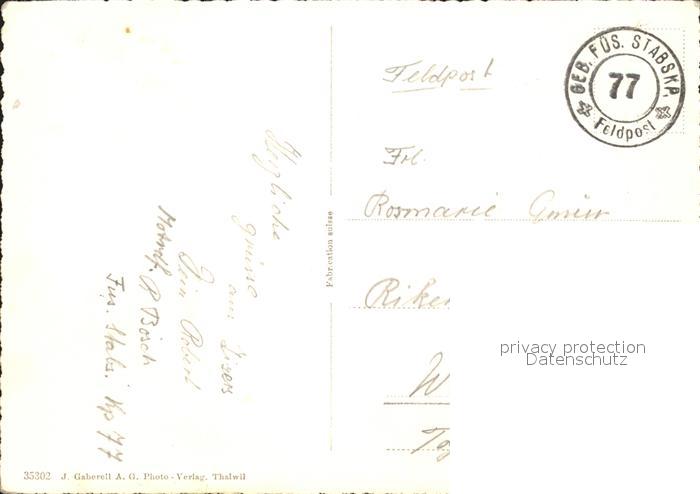 Feldpost
GEB. FÜS. STABSKP.
77
Feldpost
Frl.
Rosmarie Gmür
Riken
W
Herzliche
grüsse
aus Zizers
Dein Robert
Motrdf. R Bösch
Füs. Stabs. Kp 77
Fabrication suisse
privacy protection
Datenschutz
35302 J. Gaberell A. G. Photo-Verlag, Thalwil